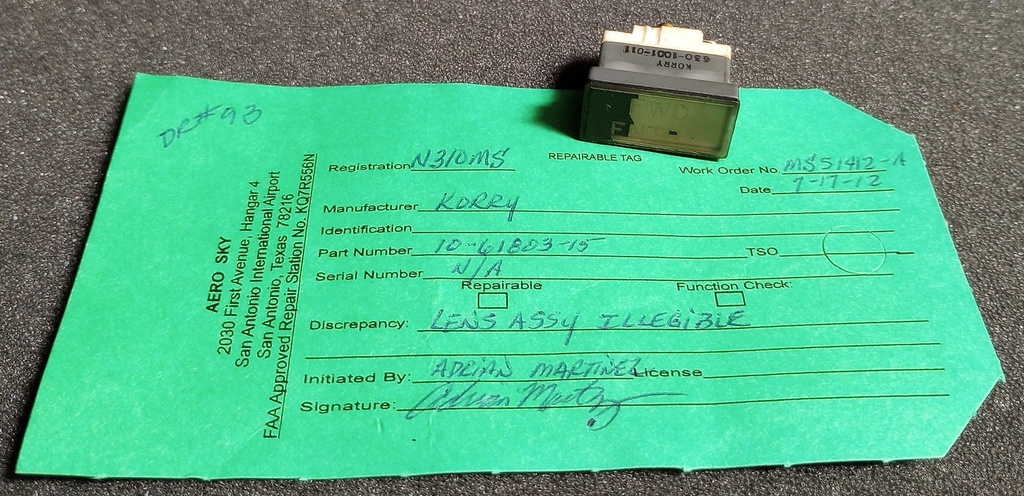 KORRY
630-1001-011
DR#93
REPAIRABLE TAG
Registration N310MS
Work Order No. MS51412-A
Date 7-17-12
Manufacturer KORRY
Identification
Part Number 10-61803-15 TSO
Serial Number N/A
Repairable Function Check:
Discrepancy: LENS ASSY ILLEGIBLE
Initiated By: ADRIAN MARTINEZ License
Signature: Adrian Martinez
AERO SKY
2030 First Avenue, Hangar 4
San Antonio International Airport
San Antonio, Texas 78216
FAA Approved Repair Station No. KQ7R556N